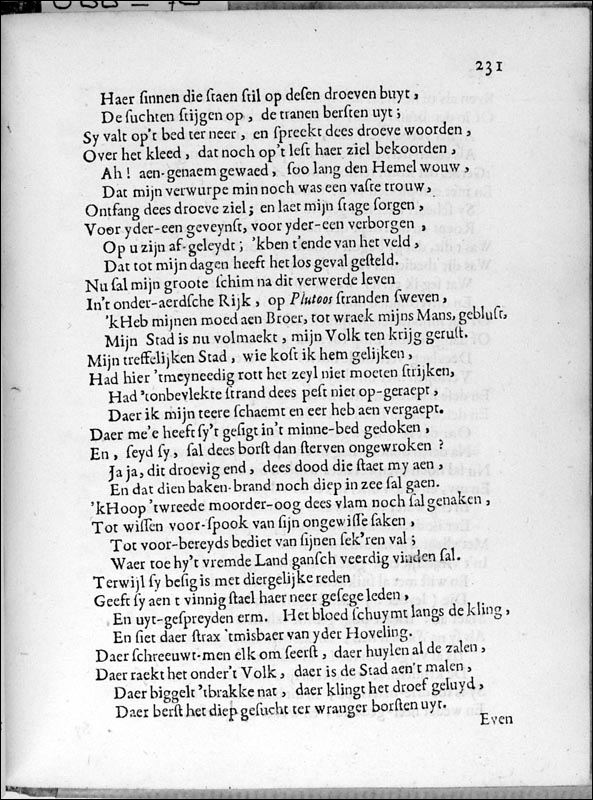 231
Haer ſinnen die ſtaen ſtil op deſen droeven buyt,
De ſuchten ſtijgen op, de tranen berſten uyt;
Sy valt op't bed ter neer, en ſpreekt dees droeve woorden,
Over het kleed, dat noch op't leſt haer ziel bekoorden,
Ah! aen-genaem gewaed, ſoo lang den Hemel wouw,
Dat mijn verwurpe min noch was een vaſte trouw,
Ontfang dees droeve ziel; en laet mijn ſtage ſorgen,
Voor yder-een geveynſt, voor yder-een verborgen,
Op u zijn af-geleydt; 'kben t'ende van het veld,
Dat tot mijn dagen heeft het los geval geſteld.
Nu ſal mijn groote ſchim na dit verwerde leven
In't onder-aerdſche Rijk, op Plutoos ſtranden ſweven,
'kHeb mijnen moed aen Broer, tot wraek mijns Mans, gebluſt,
Mijn Stad is nu volmaekt, mijn Volk ten krijg geruſt.
Mijn treffelijken Stad, wie koſt ik hem gelijken,
Had hier 'tmeyneedig rott het zeyl niet moeten ſtrijken,
Had 'tonbevlekte ſtrand dees peſt niet op-geraept,
Daer ik mijn teere ſchaemt en eer heb aen vergaept.
Daer me'e heeft ſy't geſigt in't minne-bed gedoken,
En, ſeyd ſy, ſal dees borſt dan ſterven ongewroken?
Ja ja, dit droevig end, dees dood die ſtaet my aen,
En dat dien baken-brand noch diep in zee ſal gaen.
'kHoop 'twreede moorder-oog dees vlam noch ſal genaken,
Tot wiſſen voor-ſpook van ſijn ongewiſſe ſaken,
Tot voor-bereyds bediet van ſijnen ſek'ren val;
Waer toe hy't vremde Land ganſch veerdig vinden ſal.
Terwijl ſy beſig is met diergelijke reden
Geeft ſy aen t vinnig ſtael haer neer geſege leden,
En uyt-geſpreyden erm. Het bloed ſchuymt langs de kling,
En ſiet daer ſtrax 'tmisbaer van yder Hoveling.
Daer ſchreeuwt-men elk om ſeerſt, daer huylen al de zalen,
Daer raekt het onder't Volk, daer is de Stad aen't malen,
Daer biggelt 'tbrakke nat, daer klingt het droef geluyd,
Daer berſt het diep geſucht ter wranger borſten uyt.
Even